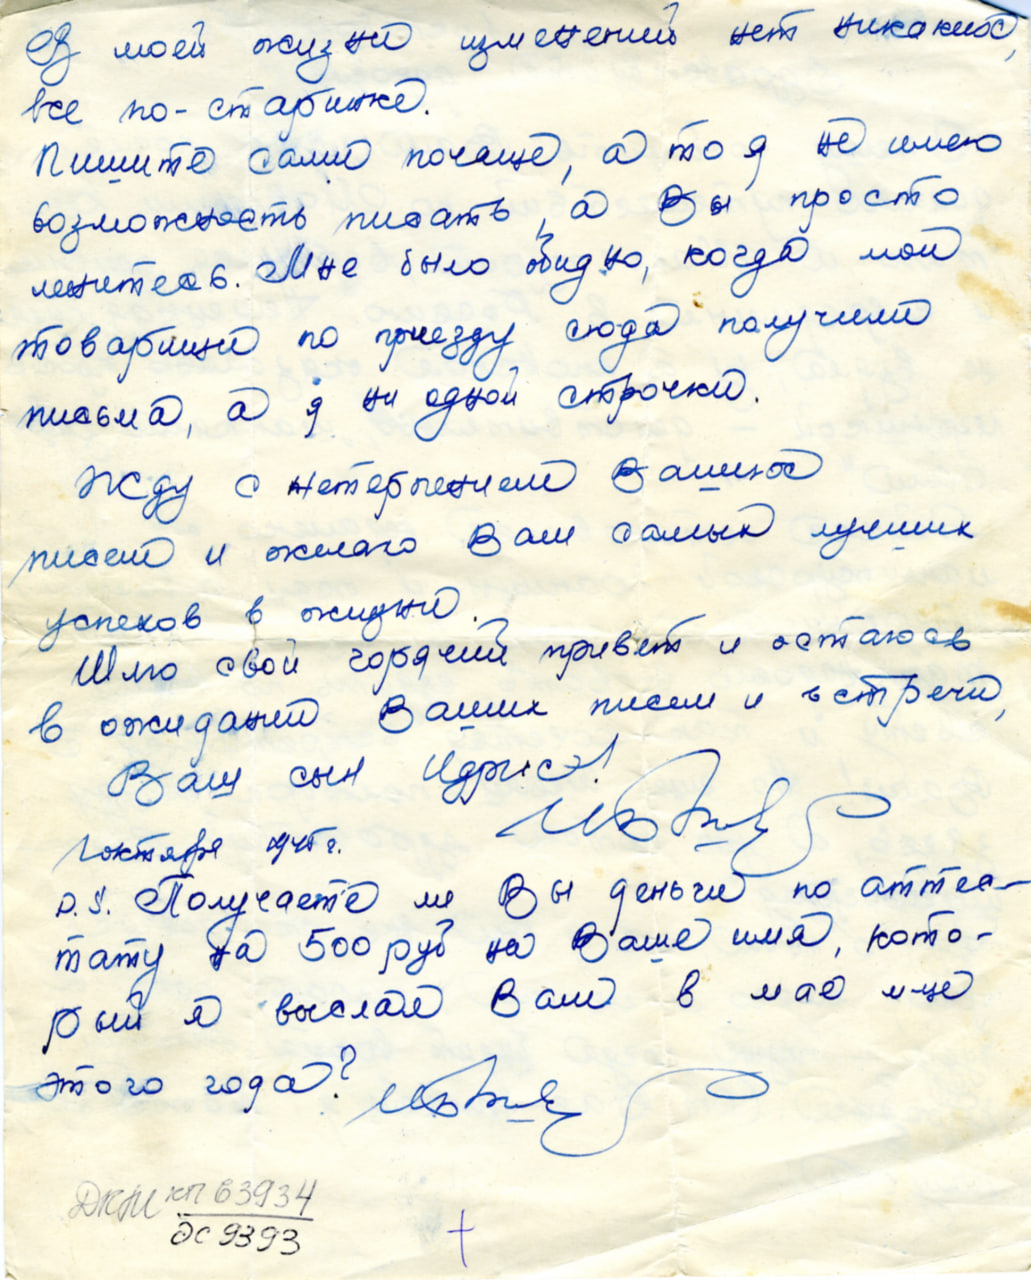 В моей жизни изменений нет никаких,
все по-старинке.
Пишите сами почаще, а то я не имею
возможность писать, а Вы просто
ленитесь. Мне было обидно, когда мои
товарищи по приезду сюда получили
письма, а я ни одной строчки.
Жду с нетерпением Ваших
писем и желаю Вам самых лучших
успехов в жизни.
Шлю свой горячий привет и остаюсь
в ожидании Ваших писем и встречи,
Ваш сын Идрис!
1 октября 1945 г.
P.S. Получаете ли Вы деньги по аттес-
тату на 500 руб на Ваше имя, кото-
рый я выслал Вам в мае м-це
этого года?
КП 63934
ДС 9393